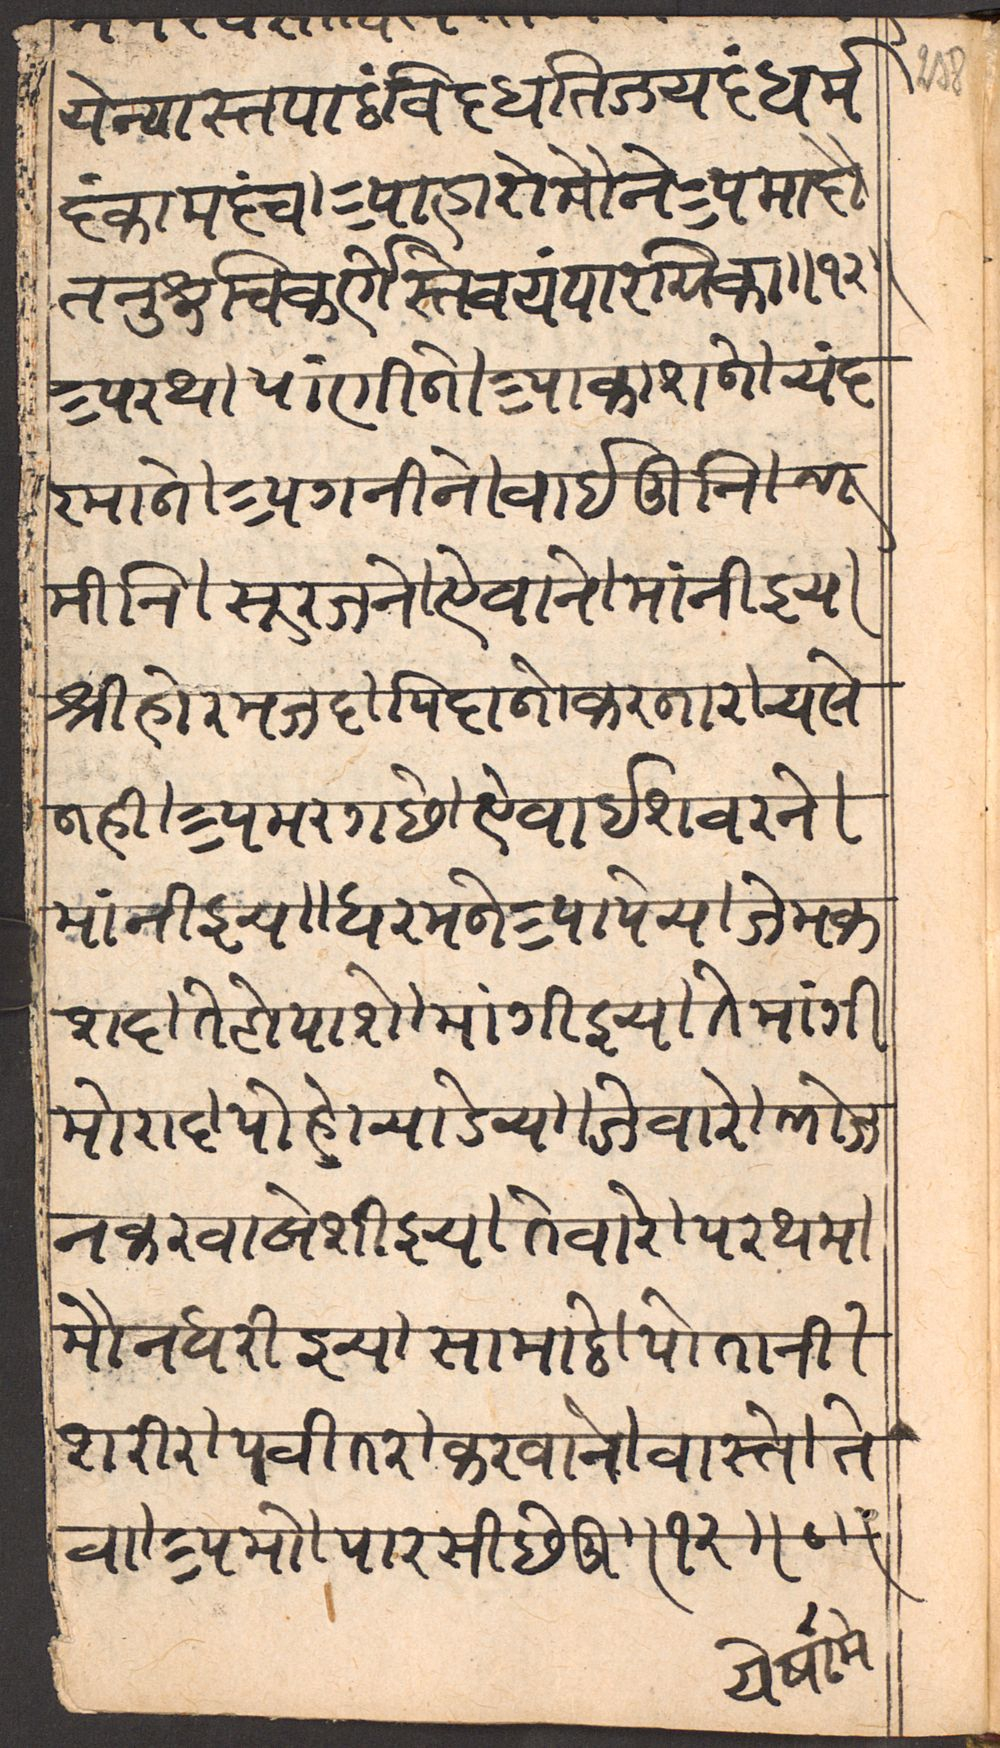 येन्यास्तपाठं विदधति जयदं धर्म
दं कामदं च। आहारो मौने आमादौ
तनुशुचिकृणेस्ते वयं पारसिका॥१२
अरथ। पांणीने। आकाशने। चंद
रमाने। अगनीने। वाईऊनि।
मीनि। सूरजने। एवाने। मांनीइ य।
श्रीहोरमजदा पिदाने करनारा यसे
नही। अमरग छे। एवाईशवरने।
मांनीइ य॥ धरमने आपे य। जे मक
शद। तेहे पाशे। मांगीइ य। ते मांगी
मोराद। पोहोचाडे य। जेवारे। भोज
न करवा बेशीइ य। तेवारे। परथम।
मौन धरीइ य। सा माटे। पोतानी।
शरीर। पवीतर। करवाने। वास्ते। ते
वा। अमो। पारसी छेऊं॥१२॥
येषां मे